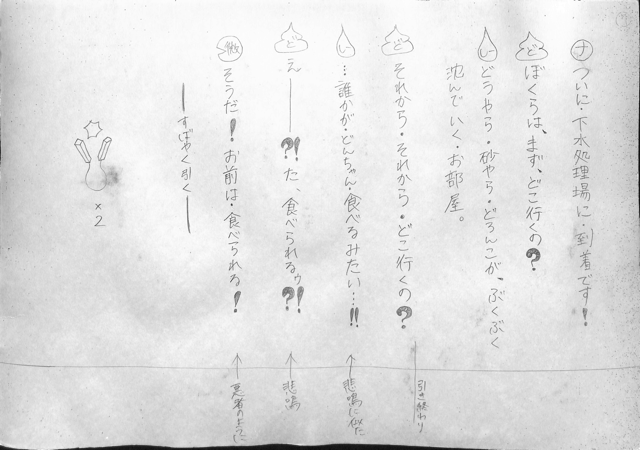 ナ ついに・下水処理場に・到着です！
ど ぼくらは、まず、どこ行くの？
しー どうやら・砂やら・どろんこが、ぶくぶく
沈んでいく・お部屋。
ど それから・それから・どこ行くの？
引き終わり
しー …誰かが・どんちゃん・食べるみたい…!!
悲鳴に似た
ど えー――?! た、食べられるゥ?!
悲鳴
微 そうだ！お前は・食べられる！
悪者のように
―すばやく引く―
×2